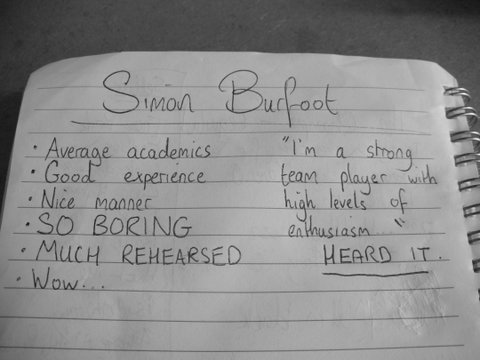 Simon Burfoot
• Average academics
• Good experience
• Nice manner
• SO BORING
• MUCH REHEARSED
• Wow...
"I'm a strong
team player with
high levels of
enthusiasm"
HEARD IT.